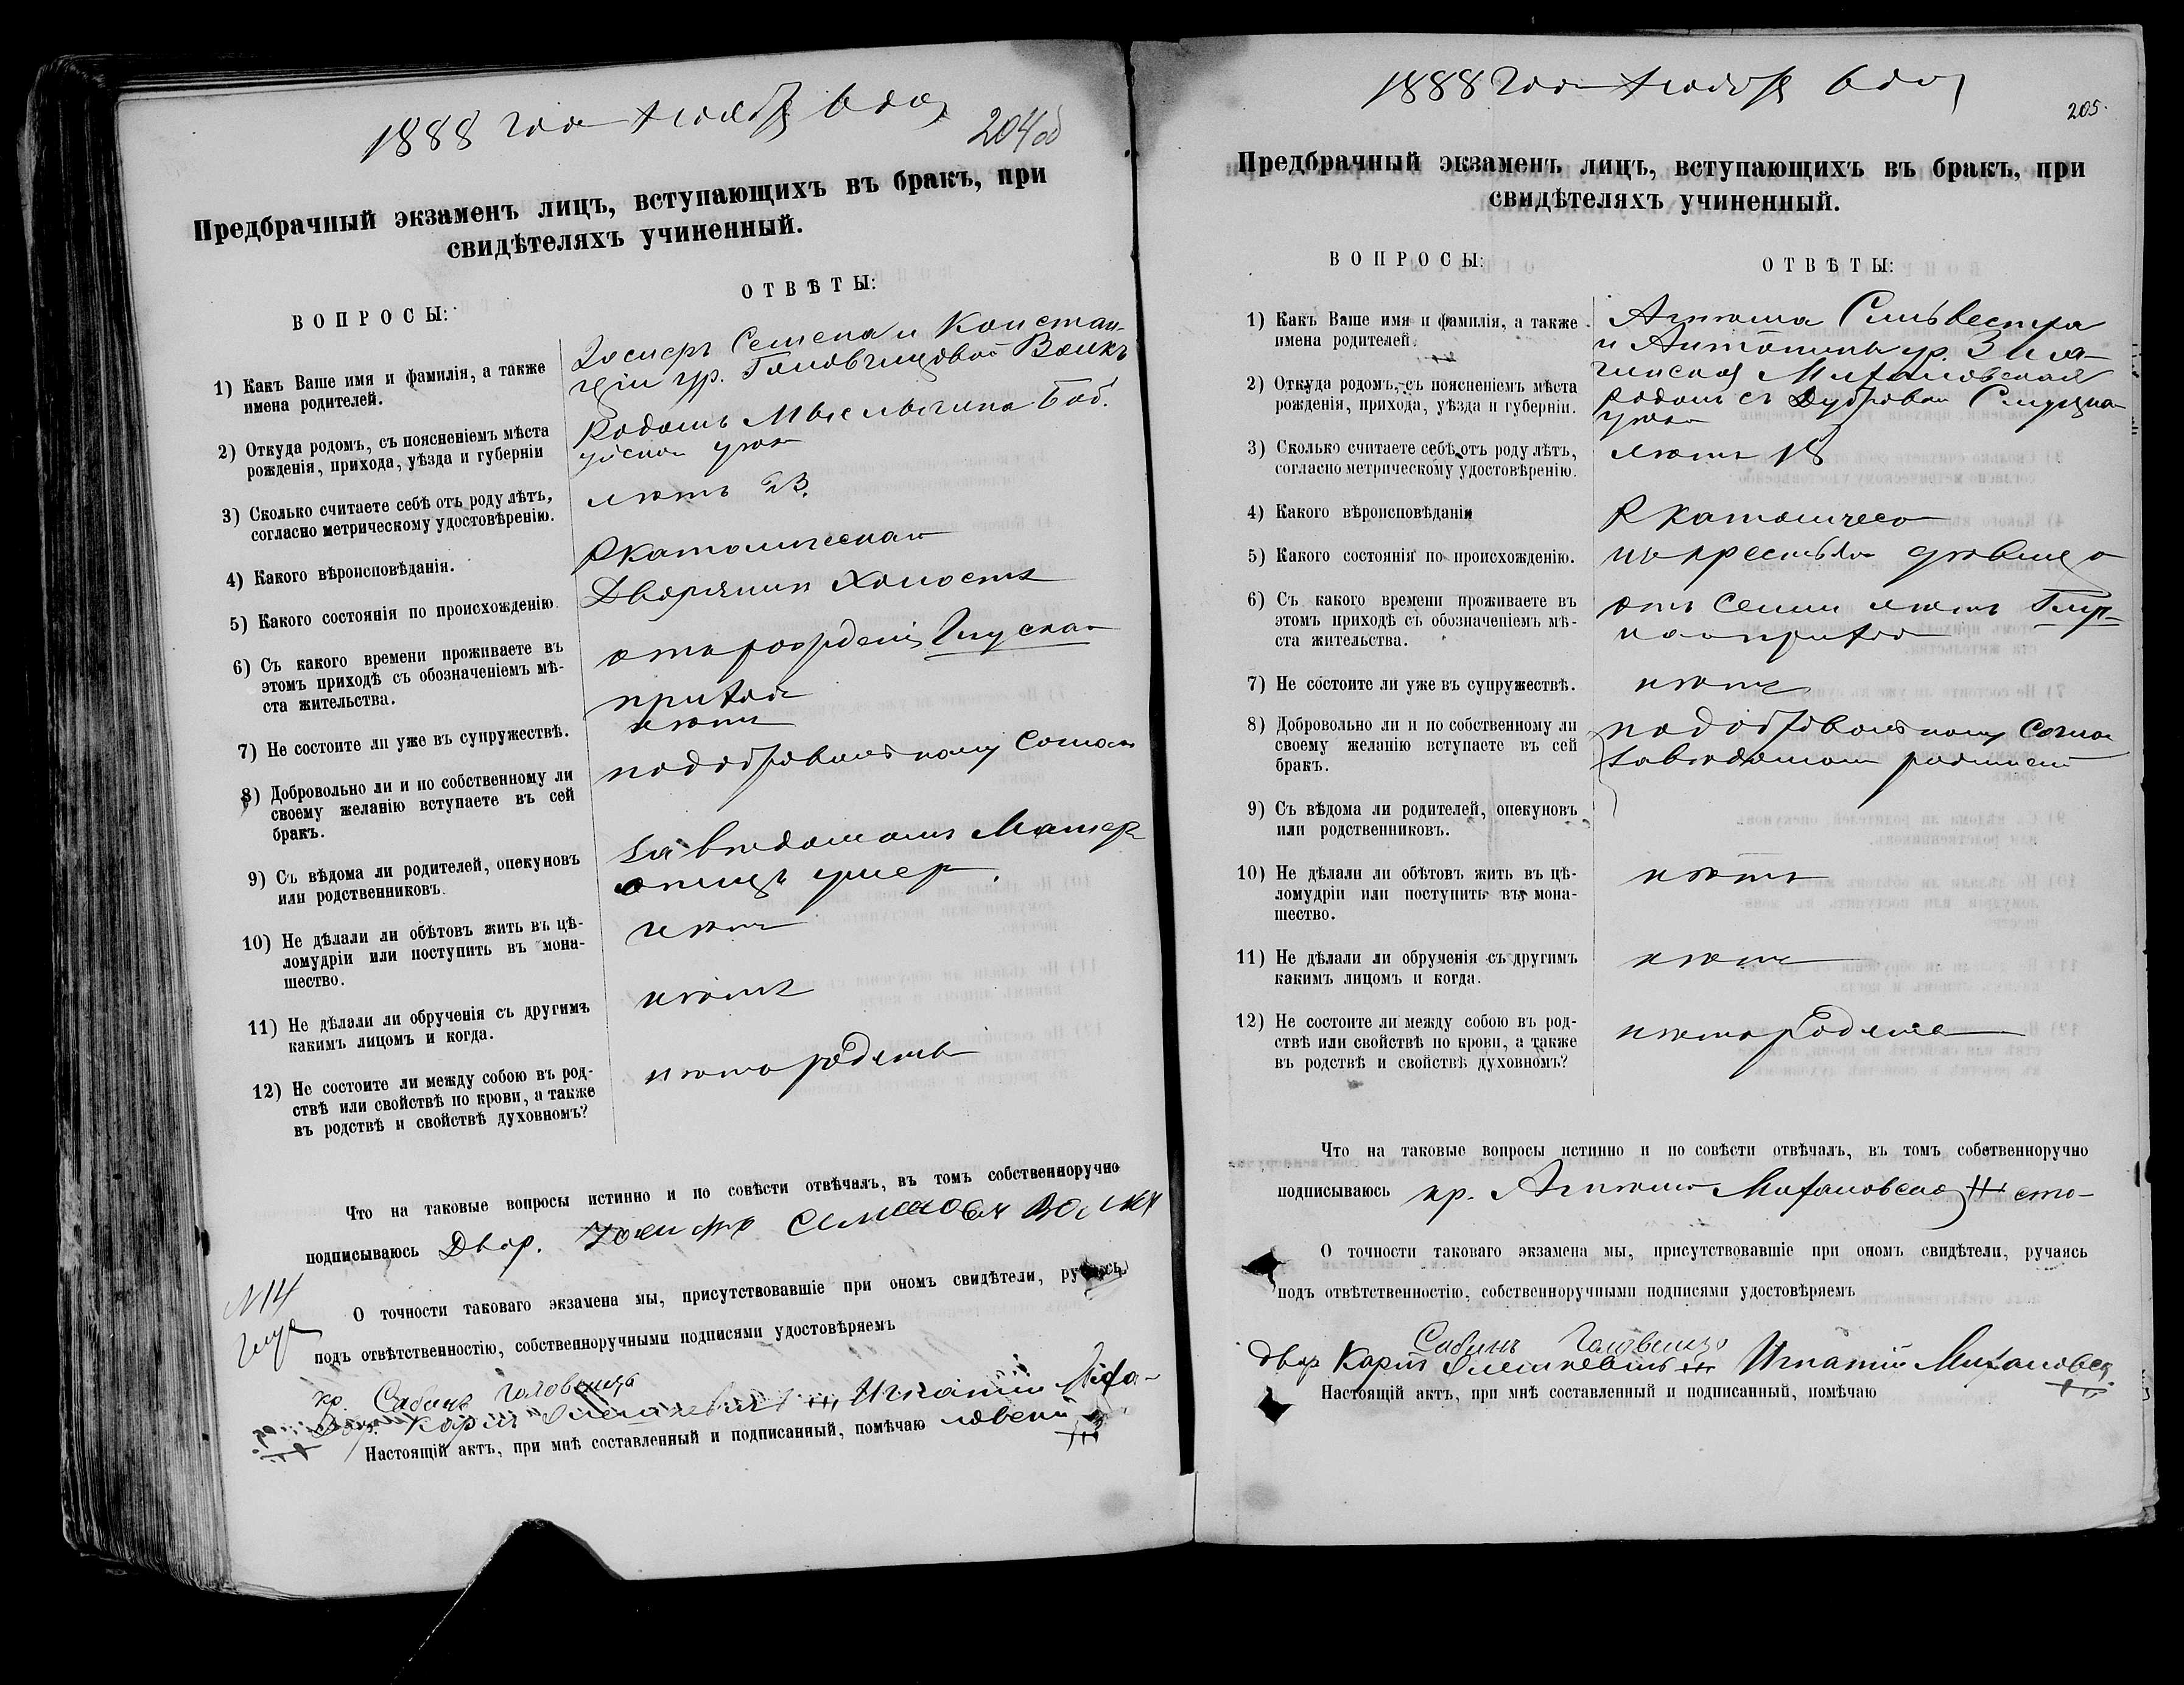 1888 года Ноября 6 дня
204об
Предбрачный экзаменъ лицъ, вступающихъ въ бракъ, при
свидѣтеляхъ учиненный.
ВОПРОСЫ:
ОТВѢТЫ:
1) Какъ Ваше имя и фамилія, а также
имена родителей.
Семена и Констан-
ціи ур.
2) Откуда родомъ, съ поясненіемъ мѣста
рожденія, прихода, уѣзда и губерніи
Родомъ Боб.
3) Сколько считаете себѣ отъ роду лѣтъ,
согласно метрическому удостовѣренію.
лѣтъ 23.
4) Какого вѣроисповѣданія.
Р Католическаго
5) Какого состоянія по происхожденію
Дворянинъ Холостъ
6) Съ какого времени проживаете въ
этомъ приходѣ съ обозначеніемъ мѣ-
ста жительства.
отъ рожденія Глускаго
прихода
7) Не состоите ли уже въ супружествѣ.
нѣтъ
8) Добровольно ли и по собственному ли
своему желанію вступаете въ сей
бракъ.
по добровольному
9) Съ вѣдома ли родителей, опекуновъ
или родственниковъ.
за вѣдомомъ Матер
отецъ умер.
10) Не дѣлали ли обѣтовъ жить въ цѣ-
ломудріи или поступить въ мона-
шество.
нѣтъ
11) Не дѣлали ли обрученія съ другимъ
какимъ лицомъ и когда.
нѣтъ
12) Не состоите ли между собою въ род-
ствѣ или свойствѣ по крови, а также
въ родствѣ и свойствѣ духовномъ?
нѣтъ
Что на таковые вопросы истинно и по совѣсти отвѣчалъ, въ томъ собственноручно
подписываюсь Двор.
О точности таковаго экзамена мы, присутствовавшіе при ономъ свидѣтели, ручаясь
N 14
подъ отвѣтственностію, собственноручными подписями удостовѣряемъ
кр. Сабинъ
Двор. Игнатій Миха-
Настоящій актъ, при мнѣ составленный и подписанный, помѣчаю
1888 года Ноября 6 дня
205.
Предбрачный экзаменъ лицъ, вступающихъ въ бракъ, при
свидѣтеляхъ учиненный.
ВОПРОСЫ:
ОТВѢТЫ:
1) Какъ Ваше имя и фамилія, а также
имена родителей.
Сильвестра
и Антонины ур.
Михаловская
2) Откуда родомъ, съ поясненіемъ мѣста
рожденія, прихода, уѣзда и губерніи.
родомъ съ Дубровы Слуцкаго
3) Сколько считаете себѣ отъ роду лѣтъ,
согласно метрическому удостовѣренію.
лѣтъ 18
4) Какого вѣроисповѣданія
Р Католическо
5) Какого состоянія по происхожденію.
дѣвица
6) Съ какого времени проживаете въ
этомъ приходѣ съ обозначеніемъ мѣ-
ста жительства.
отъ семи лѣтъ
7) Не состоите ли уже въ супружествѣ.
нѣтъ
8) Добровольно ли и по собственному ли
своему желанію вступаете въ сей
бракъ.
по добровольному
за вѣдомомъ
9) Съ вѣдома ли родителей, опекуновъ
или родственниковъ.
10) Не дѣлали ли обѣтовъ жить въ цѣ-
ломудріи или поступить въ мона-
шество.
нѣтъ
11) Не дѣлали ли обрученія съ другимъ
какимъ лицомъ и когда.
нѣтъ
12) Не состоите ли между собою въ род-
ствѣ или свойствѣ по крови, а также
въ родствѣ и свойствѣ духовномъ?
нѣтъ
Что на таковые вопросы истинно и по совѣсти отвѣчалъ, въ томъ собственноручно
подписываюсь кр.
О точности таковаго экзамена мы, присутствовавшіе при ономъ свидѣтели, ручаясь
подъ отвѣтственностію, собственноручными подписями удостовѣряемъ
Сабинъ
двор Игнатій
Настоящій актъ, при мнѣ составленный и подписанный, помѣчаю